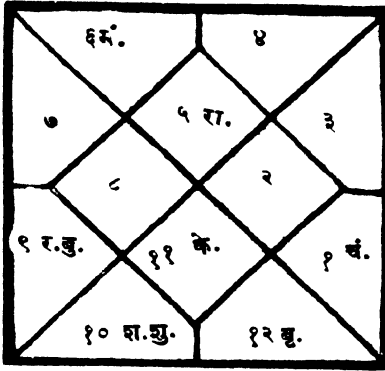 ६ मं.
४
५ रा.
७
३
८
२
९ र.बु.
११ के.
१ चं.
१० श.शु.
१२ बृ.